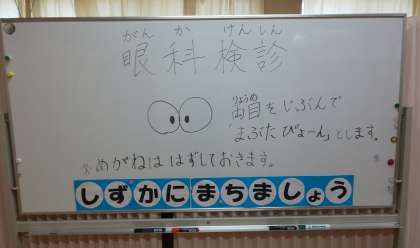 がん か けんしん
眼科検診
りょうめ
両目をじぶんで
「まぶた びょーん」とします。
※めがねははずしておきます。
しずかにまちましょう